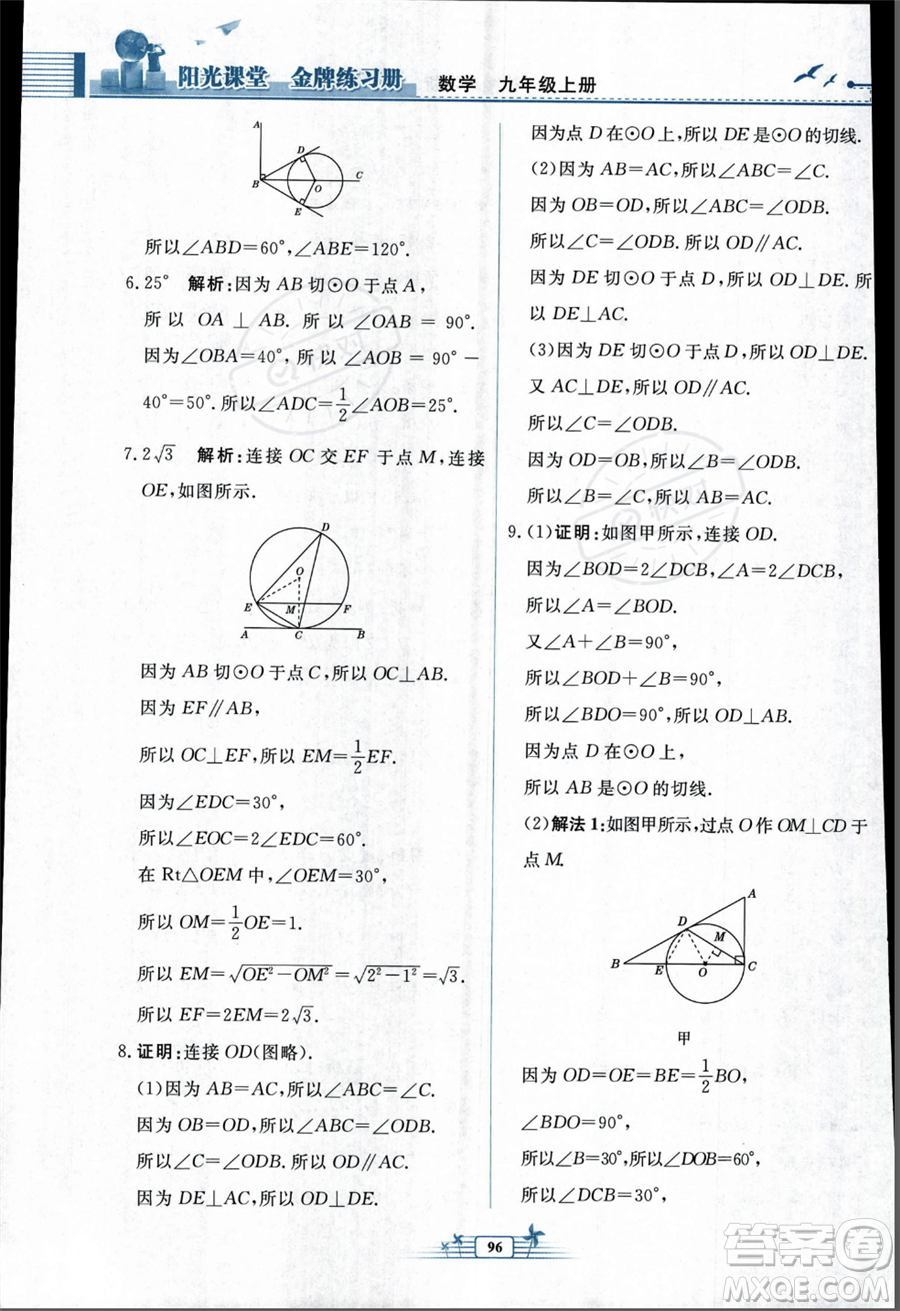 阳光课堂 金牌练习册 数学 九年级上册
A
D
B
O
C
E
所以∠ABD=60°,∠ABE=120°.
6.25° 解析:因为AB切⊙O于点A,
所以OA⊥AB.所以∠OAB=90°.
因为∠OBA=40°,所以∠AOB=90°-
40°=50°.所以∠ADC=1/2∠AOB=25°.
7.2√3 解析:连接OC交EF于点M,连接
OE,如图所示.
D
O
E M F
A C B
因为AB切⊙O于点C,所以OC⊥AB.
因为EF∥AB,
所以OC⊥EF,所以EM=1/2EF.
因为∠EDC=30°,
所以∠EOC=2∠EDC=60°.
在Rt△OEM中,∠OEM=30°,
所以OM=1/2OE=1.
所以EM=√(OE²-OM²)=√(2²-1²)=√3.
所以EF=2EM=2√3.
8.证明:连接OD(图略).
(1)因为AB=AC,所以∠ABC=∠C.
因为OB=OD,所以∠ABC=∠ODB.
所以∠C=∠ODB.所以OD∥AC.
因为DE⊥AC,所以OD⊥DE.
因为点D在⊙O上,所以DE是⊙O的切线.
(2)因为AB=AC,所以∠ABC=∠C.
因为OB=OD,所以∠ABC=∠ODB.
所以∠C=∠ODB.所以OD∥AC.
因为DE切⊙O于点D,所以OD⊥DE.所
以DE⊥AC.
(3)因为DE切⊙O于点D,所以OD⊥DE.
又AC⊥DE,所以OD∥AC.
所以∠C=∠ODB.
因为OD=OB,所以∠B=∠ODB.
所以∠B=∠C,所以AB=AC.
9.(1)证明:如图甲所示,连接OD.
因为∠BOD=2∠DCB,∠A=2∠DCB,
所以∠A=∠BOD.
又∠A+∠B=90°,
所以∠BOD+∠B=90°,
所以∠BDO=90°,所以OD⊥AB.
因为点D在⊙O上,
所以AB是⊙O的切线.
(2)解法1:如图甲所示,过点O作OM⊥CD于
点M.
A
D
M
B E O C
甲
因为OD=OE=BE=1/2BO,
∠BDO=90°,
所以∠B=30°,所以∠DOB=60°,
所以∠DCB=30°,
96
答案圈
MXQE.COM